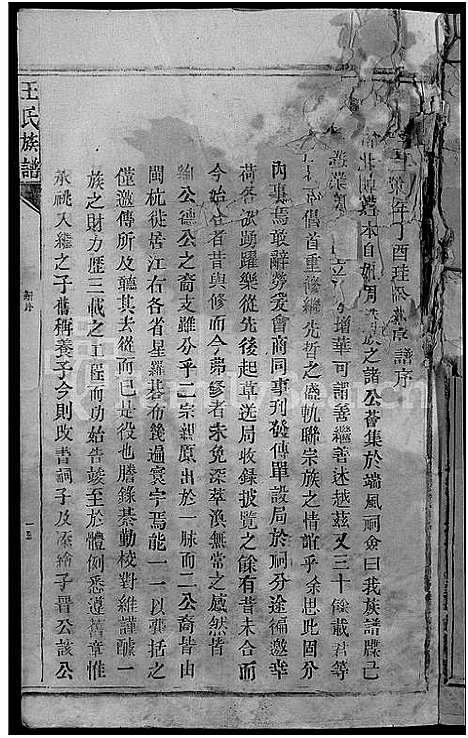 年丁酉珪 譜序
族之諸公薈集於端風祠僉曰我族譜牒已
增華可謂善繼善述越茲又三十餘載君等
倡首重修繼先哲之盛軌聯宗族之情誼乎余思此固分
內事焉敢辭勞爰會商同事刊發傳單設局於祠分途徧邀幸
荷各 踴躍樂從先後起草送局收錄披覽之餘有昔未合而
今始合者昔與修而今弗修者未免深萃渙無常之感然皆
公德公之裔支雖分乎二宗親原出於一脉而二公裔皆由
閩杭徙居江右各省星羅碁布幾遍寰宇焉能一一以冀括之
僅邀傳所及聽其去從而已是役也謄錄綦勤校對維謹醵一
族之財力歷三載之工程而功始告竣至於體例悉遵舊章惟
承祧入繼之子舊稱養子今則改書祠子及添繪子晋公該公
王氏族譜
序
一